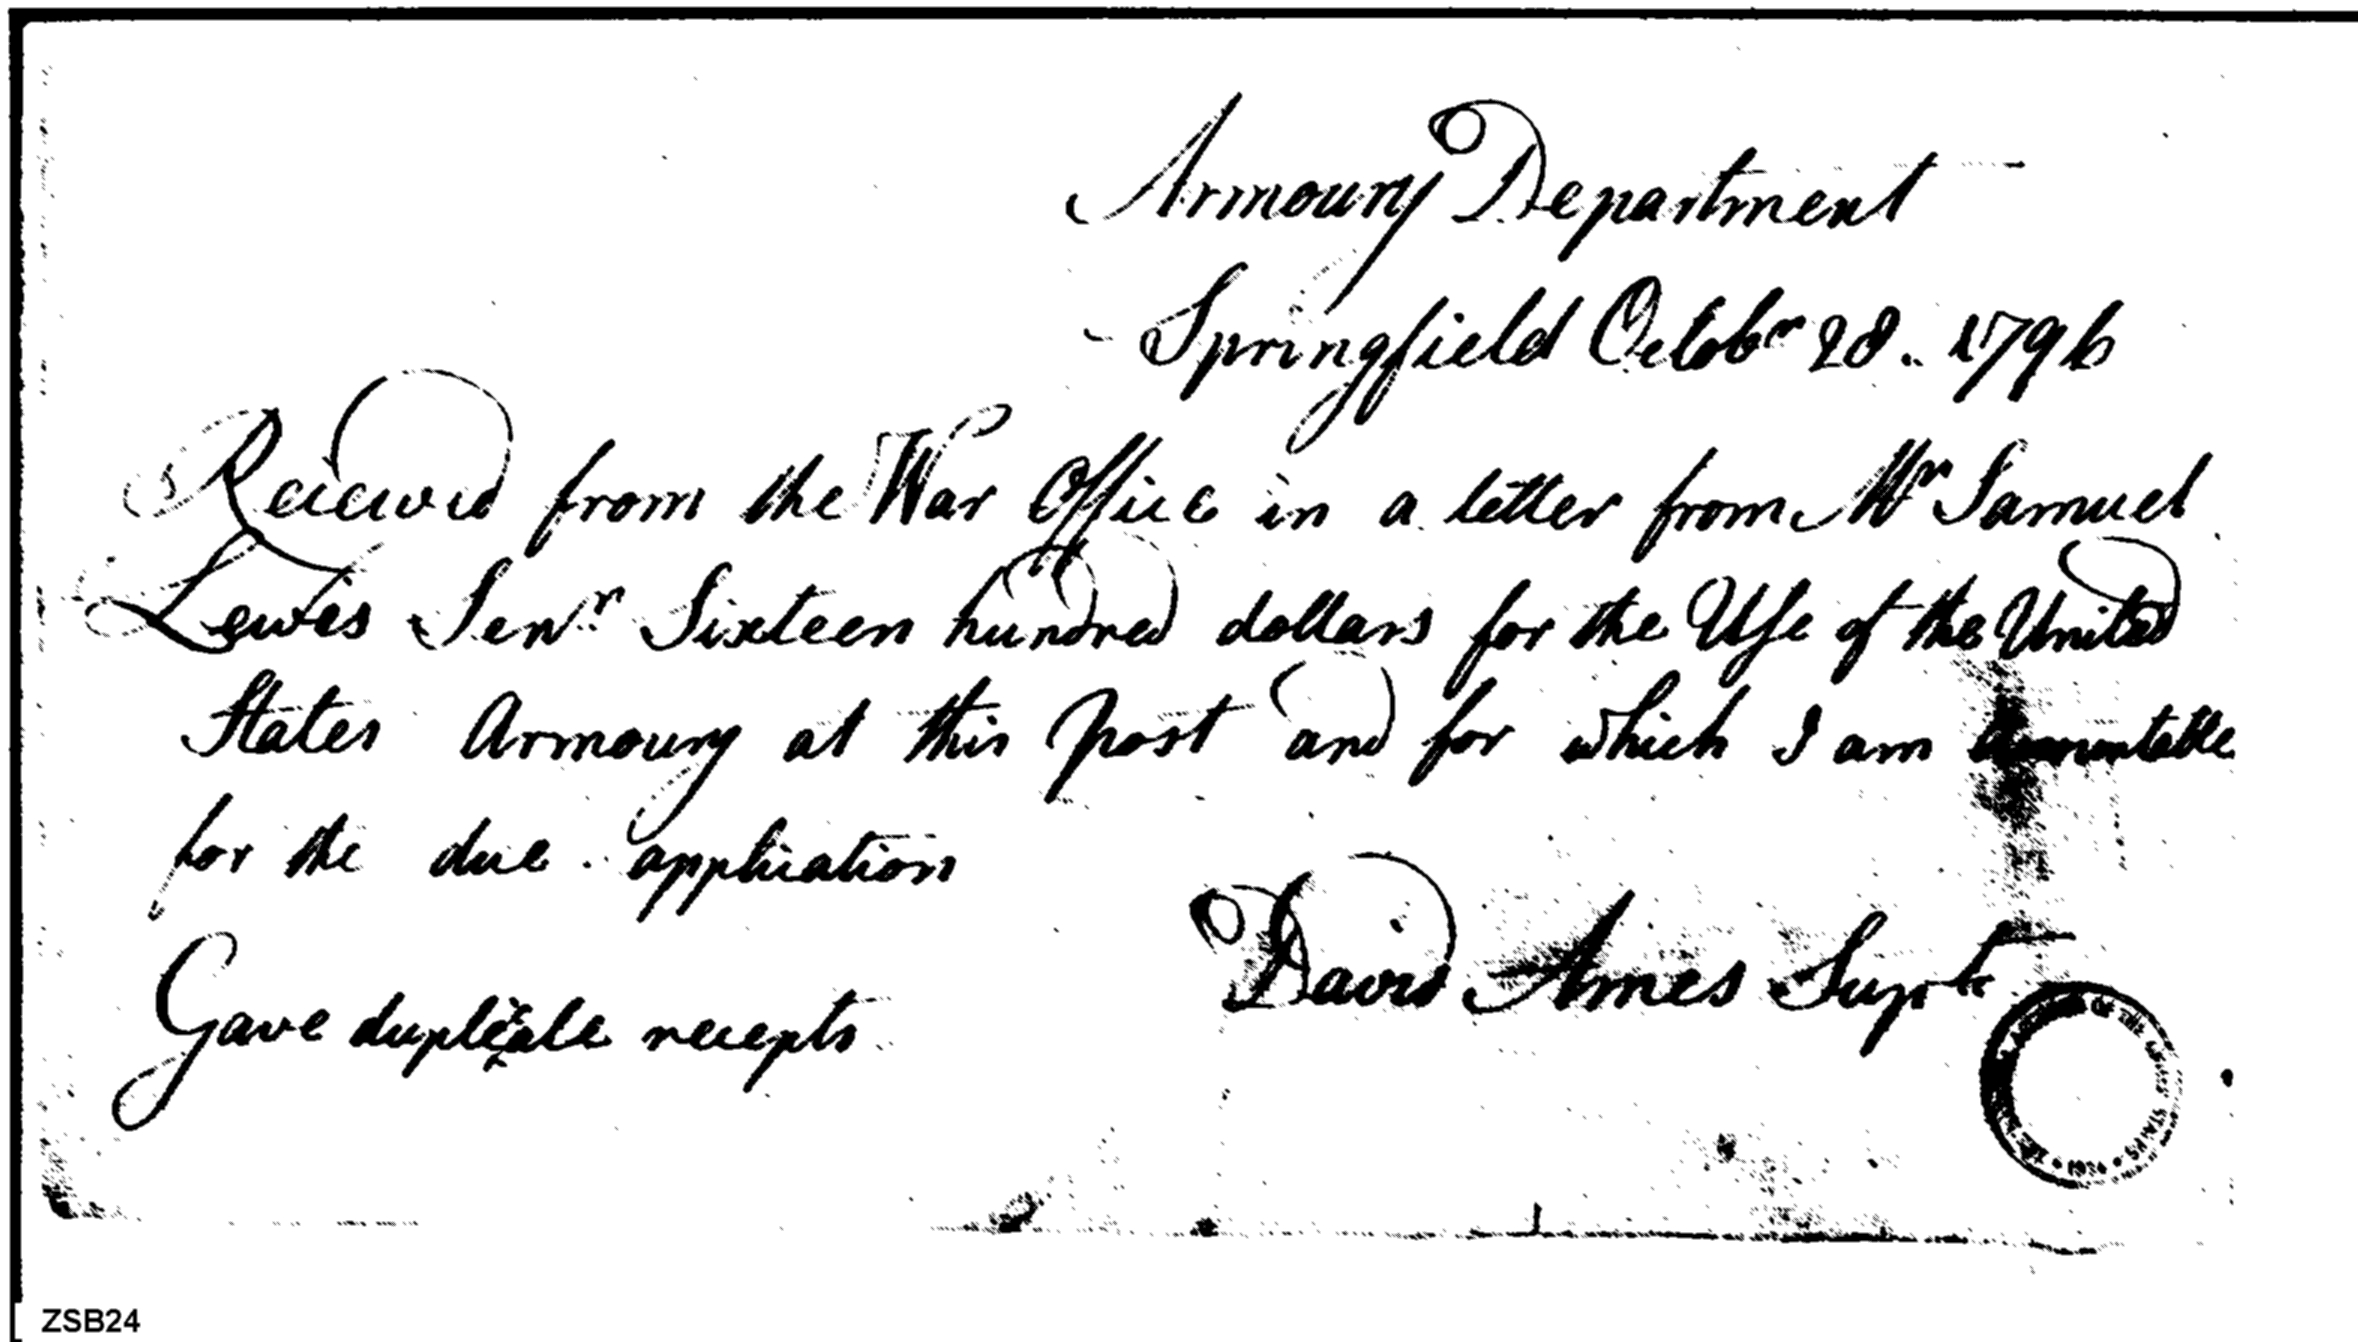 Armoury Department
Springfield Octobr 28. 1796
Received from the War Office in a letter from Mr Samuel
Lewis Senr Sixteen hundred dollars for the Use of the United
States Armoury at this post and for which I am accountable
for the due application
David Ames Supt
Gave duplicate receipts
OF THE UNITED STATES • 1934 •
ZSB24